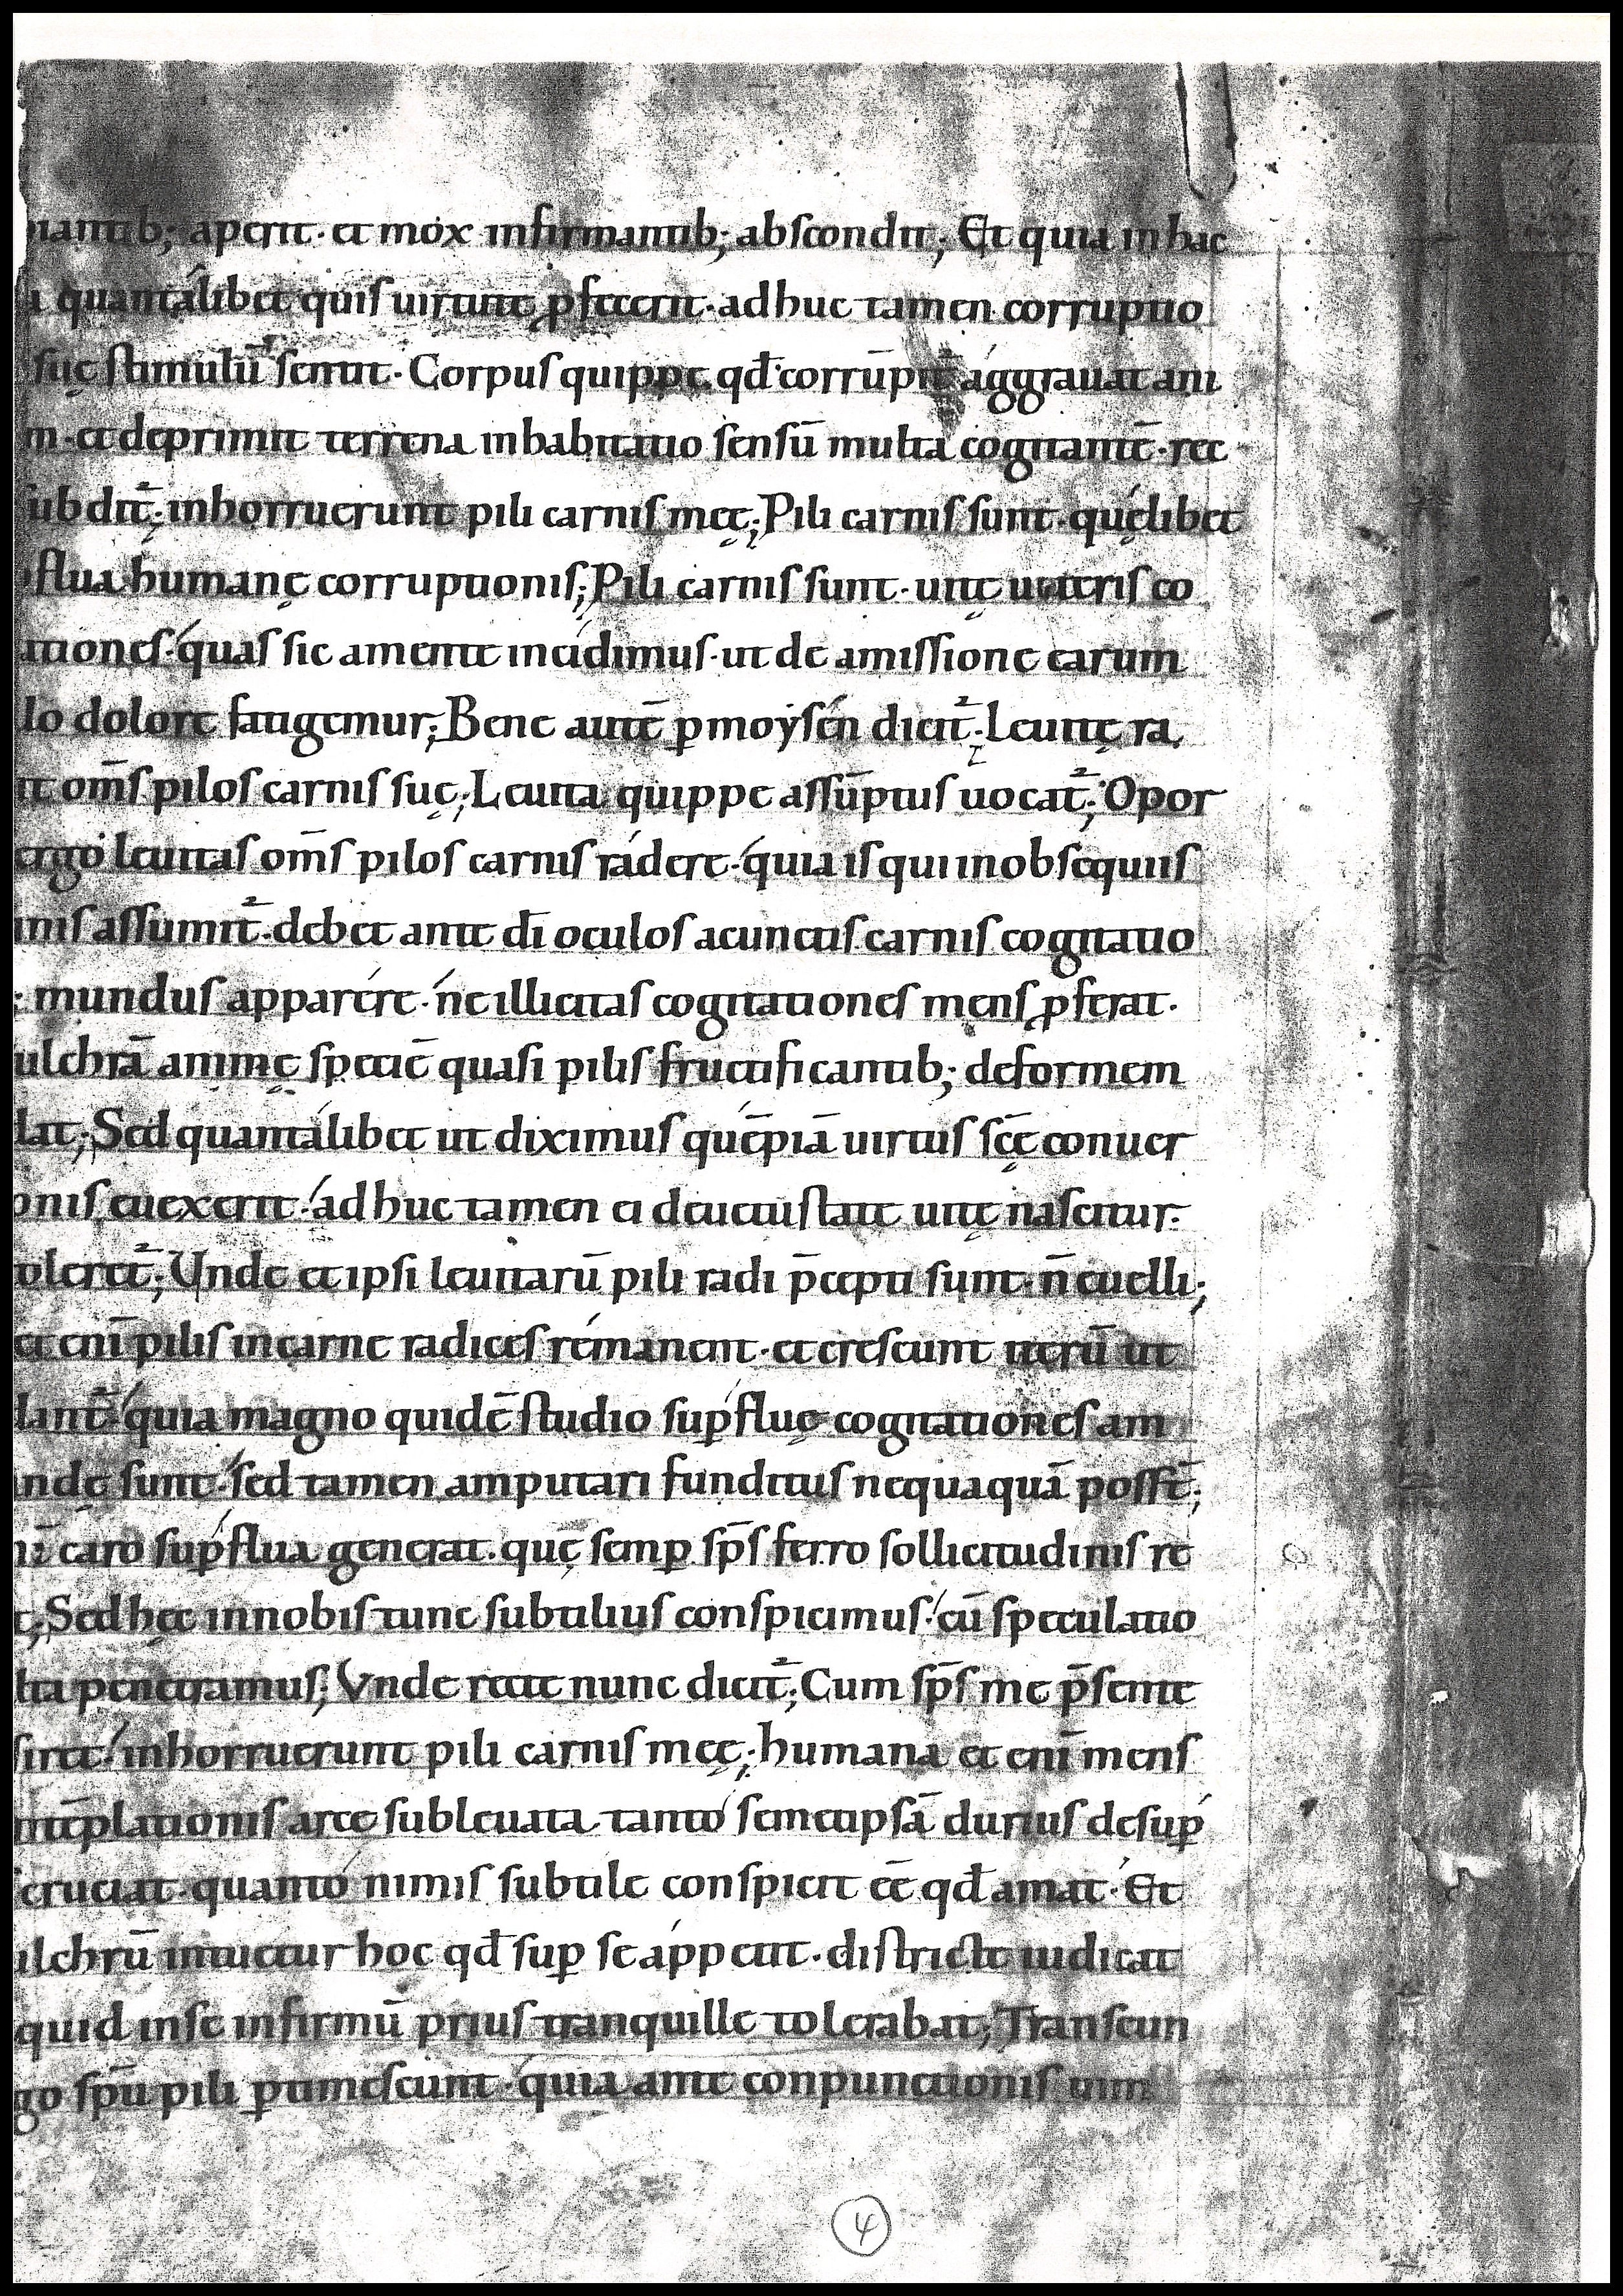 iantib; aperit· et mox infirmantib; abscondit; Et quia in hac
a quantalibet quis uirtute ꝓfecerit· adhuc tamen corruptio
suę stimulū sentit· Corpus quippe qđ corrūpit᷑ aggrauat ani
m· et deprimit terrena inhabitatio sensū multa cogitantē· rec
ubdit᷑; inhorruerunt pili carnis meę; Pili carnis sunt· quęlibet
flua humanę corruptionis; Pili carnis sunt· uitę ueteris co
ationes· quas sic a mente incidimus· ut de amissione earum
lo dolore fatigemur; Bene autē ꝑ moysen dicit᷑· Leuitę ra
it om̄s pilos carnis suę; Leuita quippe assūptus uocat᷑; Opor
ergo leuitas om̄s pilos carnis rádere· quia is qui in obsequiis
inis assumit᷑· debet ante dī oculos a cunctis carnis cogitatio
; mundus apparére· ne illicitas cogitationes mens ꝓferat·
ulchrā animę speciē quasi pilis fructificantib; deformem
dat; Sed quantálibet ut diximus quēpiā uirtus scę̄ conuer
onis euexerit· adhuc tamen ei de uetustate uitę nascitur·
toleret᷑; Unde et ipsi leuitarū pili radi p̄cepti sunt· n̄ euelli;
et enī pilis in carne radices rémanent· et crescunt iterū ut
dant᷑· quia magno quidē studio suꝑfluę cogitationes am
andę sunt· sed tamen amputari funditus nequaquā possт̄;
caro suꝑflua generat· quę semꝑ sp̄s ferro sollicitudinis re
t; Sed hęc in nobis tunc subtilius conspicimus· cū speculatio
lta penetramus; Vnde recte nunc dicit᷑; Cum sp̄s me p̄sente
siret· inhorruerunt pili carnis meę; humana et enī mens
ntēplationis arce subleuata tanto semetipsā durius de suꝑ
cruciat· quanto nimis subtile conspicit eē̄ qđ amat· Et
ulchrū intuetur hoc qđ suꝑ se áppetit· districte iudicat
quid in se infirmū prius tranquille tolerabat; Transeun
go sp̄u pili ꝑtimescunt· quia ante conpunctionis uim
4